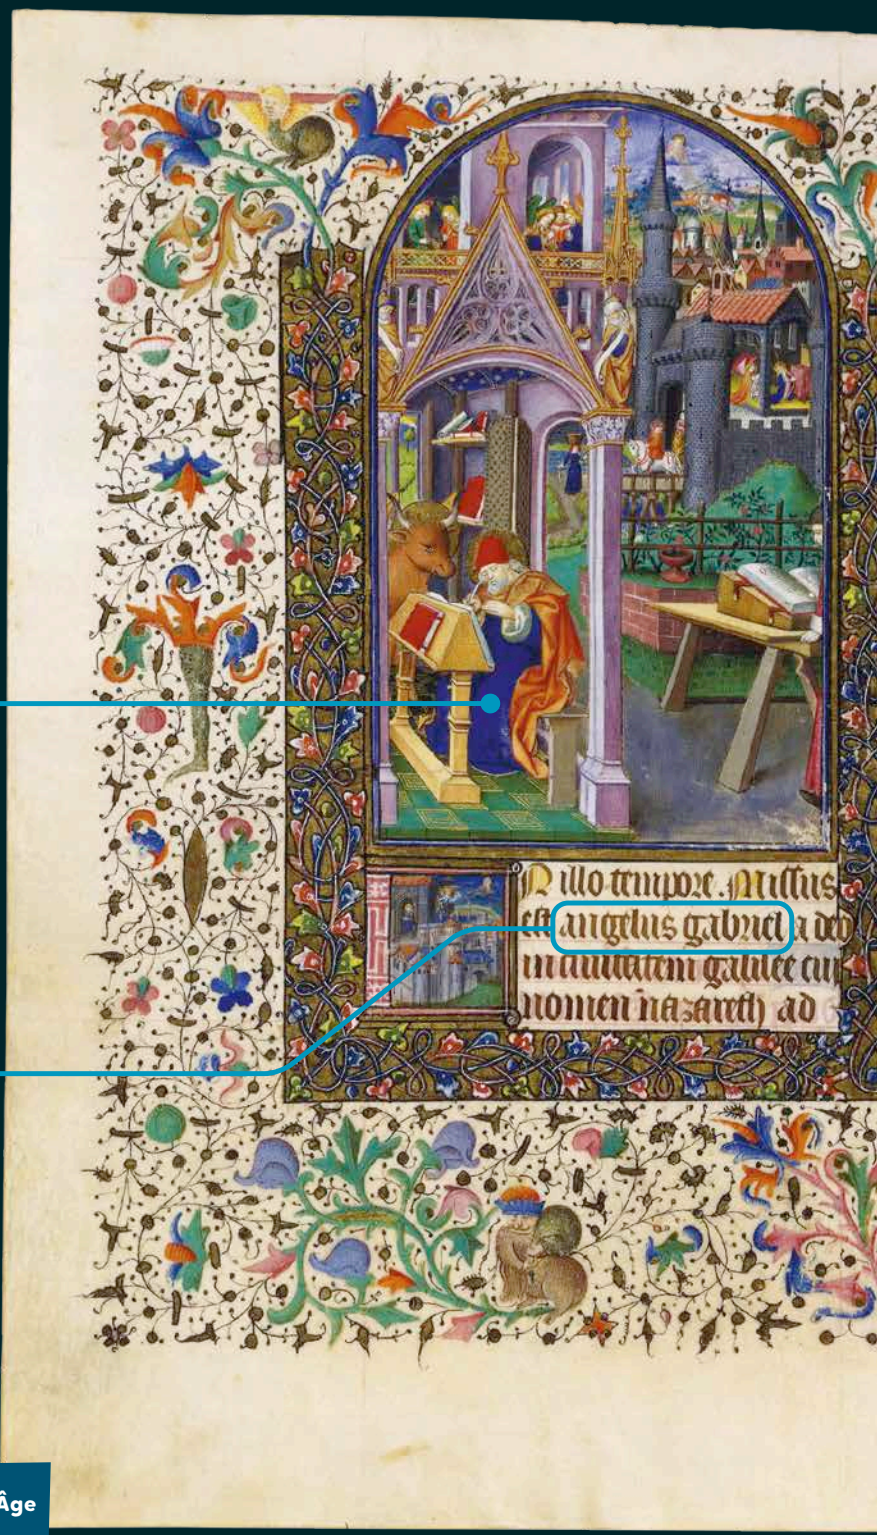 N illo tempore. Missus
est angelus gabriel a deo
in ciuitatem galilee cui
nomen nazareth ad
Âge